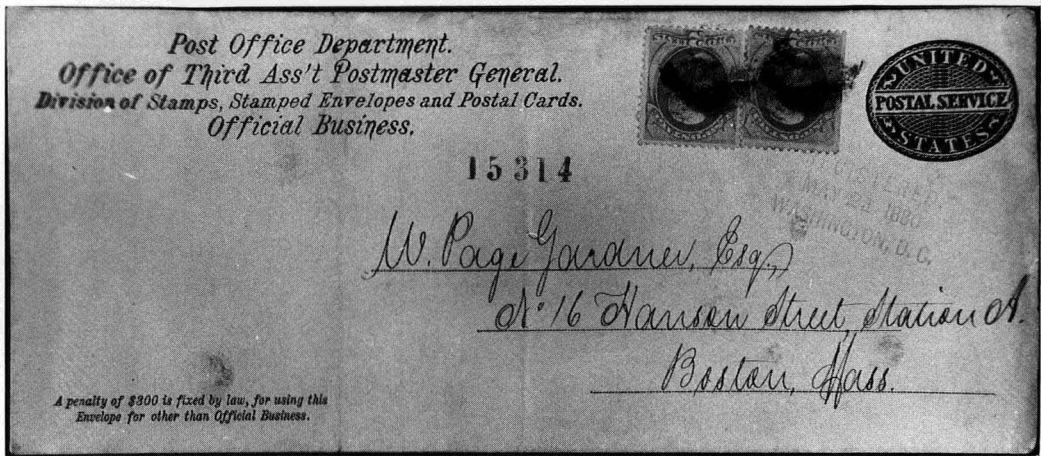 Post Office Department.
Office of Third Ass't Postmaster General.
Division of Stamps, Stamped Envelopes and Postal Cards.
Official Business.
UNITED
POSTAL SERVICE
STATES
15314
REGISTERED.
MAY 1880
WASHINGTON, D. C.
W. Page Gardner, Esq.,
No 16 Hanson Street, Station A.
Boston, Mass.
A penalty of $300 is fixed by law, for using this
Envelope for other than Official Business.